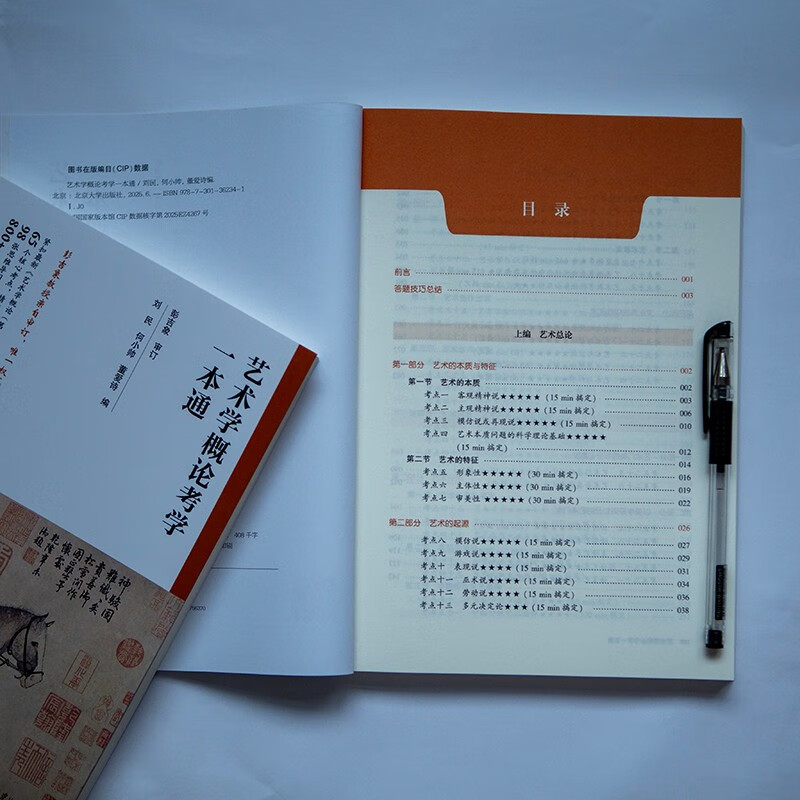 图书在版编目(CIP)数据
艺术学概论考学一本通 / 刘民, 何小帅, 董爱诗编.
北京 : 北京大学出版社, 2025. 6. — ISBN 978-7-301-36234-1
Ⅰ. J0
国国家版本馆 CIP 数据核字第 2025EZ4267 号
408 千字
艺术学概论考学
一本通
彭吉象 审订
刘 民 何小帅 董爱诗 编
彭吉象教授亲自审订，唯一
紧扣最新《艺术学概论
65 个核心考点，精
98 张思维导图
800
目 录
前言 001
答题技巧总结 003
上编 艺术总论
第一部分 艺术的本质与特征 002
第一节 艺术的本质 002
考点一 客观精神说★★★★★（15 min搞定） 003
考点二 主观精神说★★★★★（15 min搞定） 006
考点三 模仿说或再现说★★★★★（15 min搞定） 010
考点四 艺术本质问题的科学理论基础★★★★★
（15 min搞定） 012
第二节 艺术的特征 014
考点五 形象性★★★★★（30 min搞定） 016
考点六 主体性★★★★★（30 min搞定） 019
考点七 审美性★★★★★（30 min搞定） 022
第二部分 艺术的起源 026
考点八 模仿说★★★★（15 min搞定） 027
考点九 游戏说★★★★（15 min搞定） 029
考点十 表现说★★★★（15 min搞定） 031
考点十一 巫术说★★★★（15 min搞定） 034
考点十二 劳动说★★★★（15 min搞定） 036
考点十三 多元决定论★★★（15 min搞定） 038